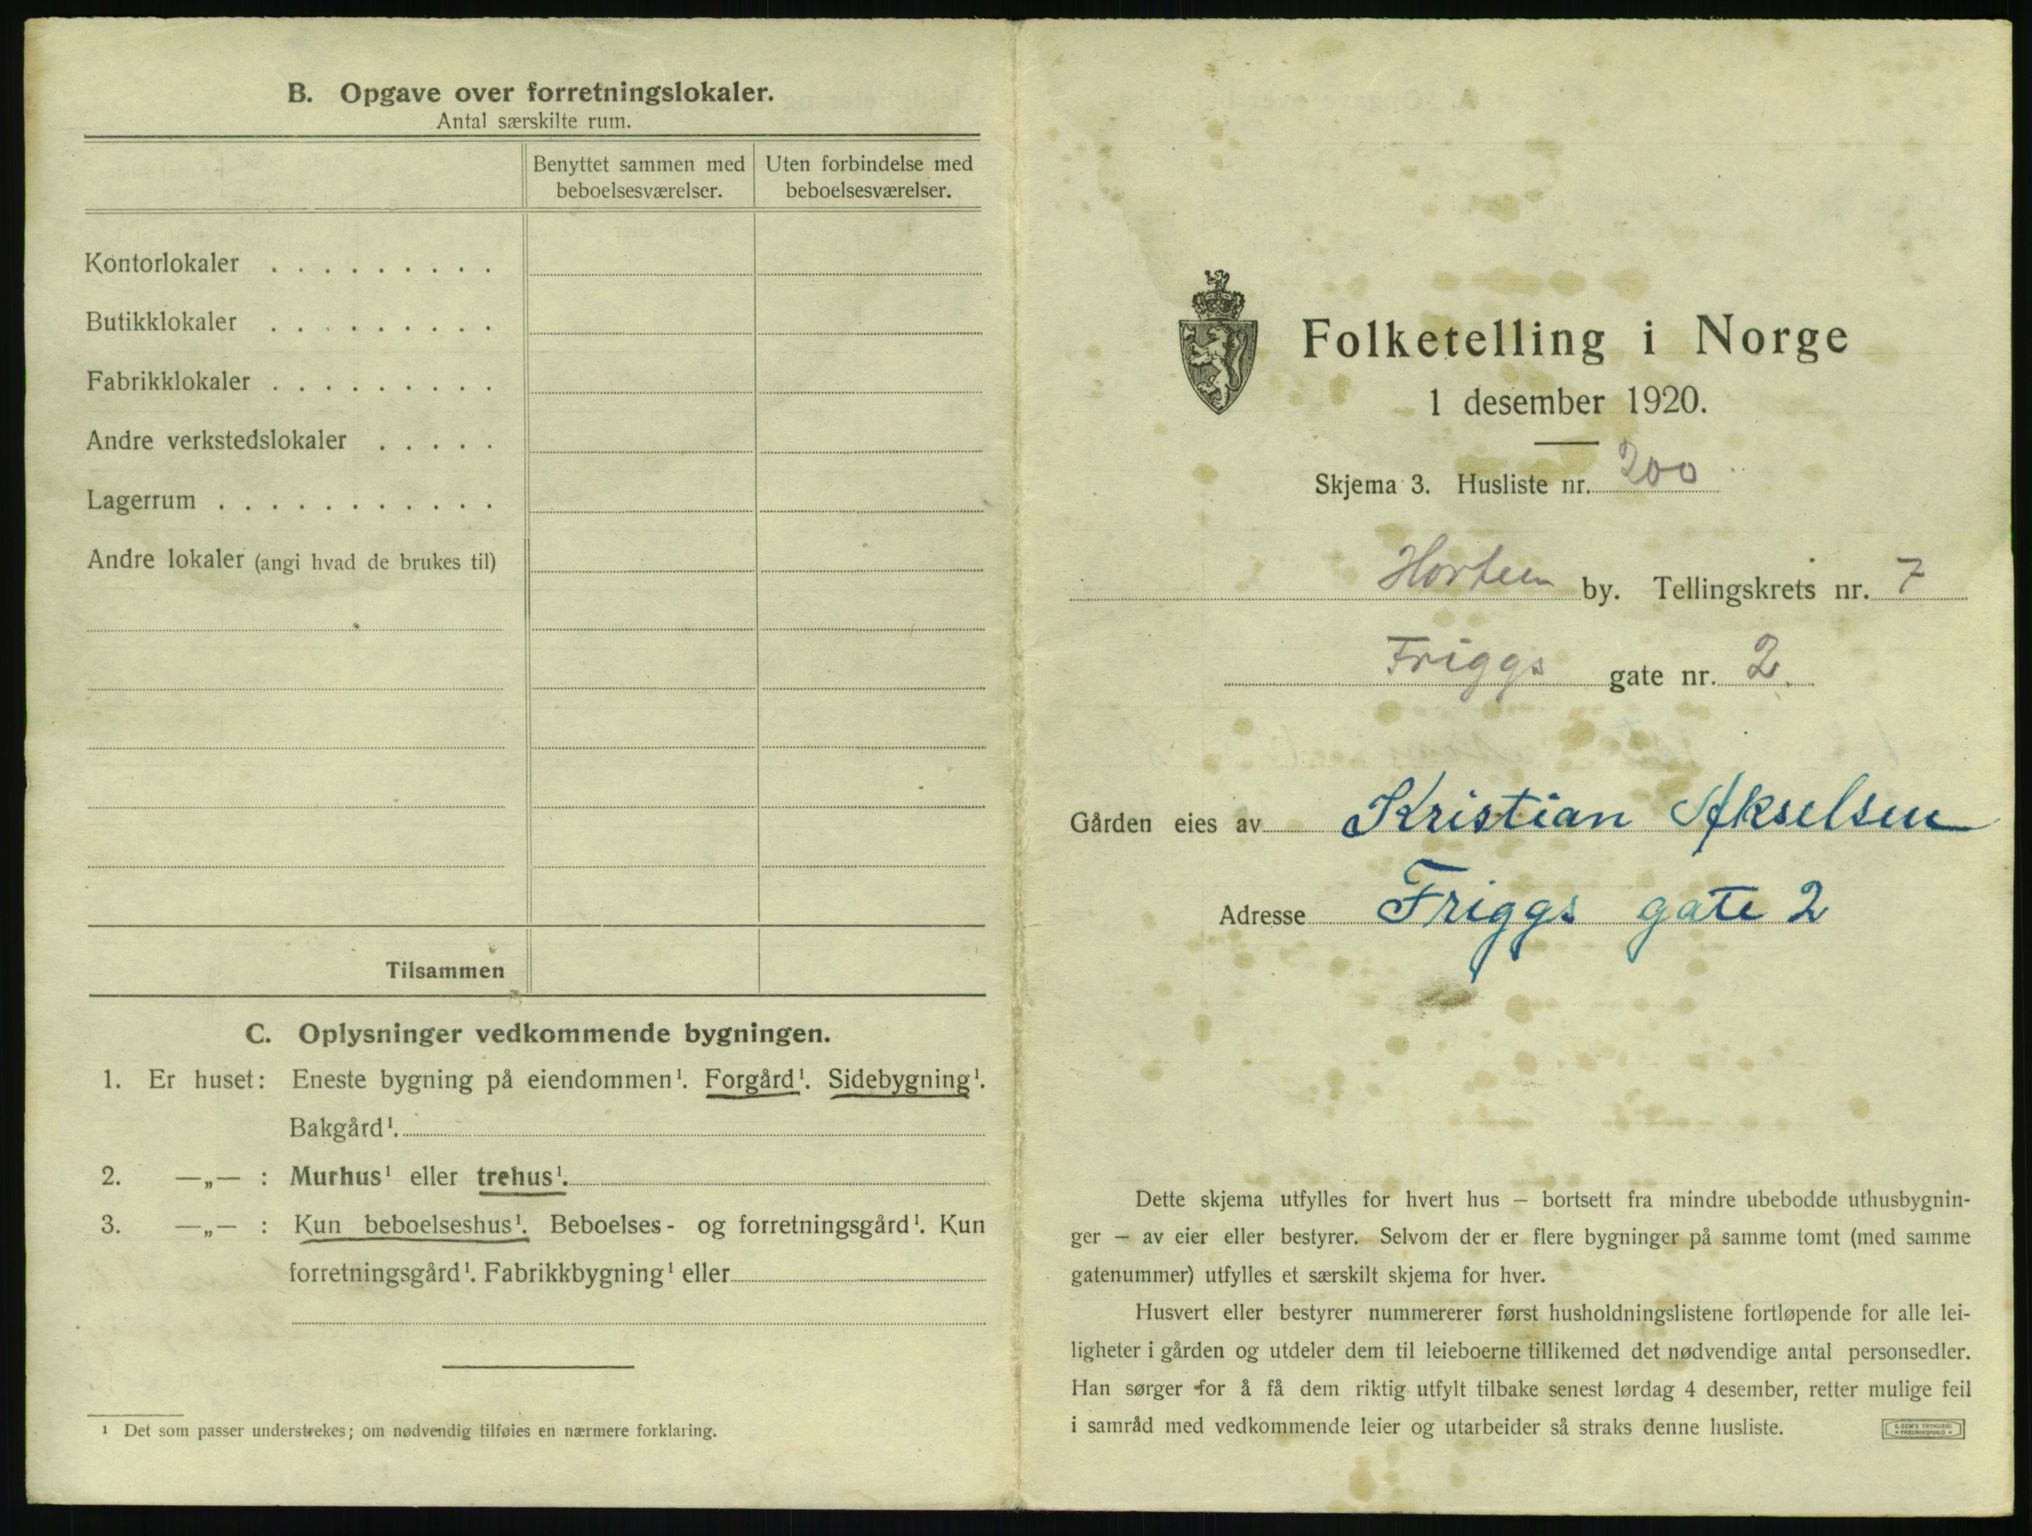 B. Opgave over forretningslokaler.
Antal særskilte rum.
Benyttet sammen med
beboelsesværelser.
Uten forbindelse med
beboelsesværelser.
Kontorlokaler . . . . . . . . .
Butikklokaler . . . . . . . . .
Fabrikklokaler . . . . . . . . .
Andre verkstedslokaler . . . . .
Lagerrum . . . . . . . . . . .
Andre lokaler (angi hvad de brukes til)
Tilsammen
C. Oplysninger vedkommende bygningen.
1. Er huset: Eneste bygning på eiendommen¹. Forgård¹. Sidebygning¹.
Bakgård¹.
2. —„— : Murhus¹ eller trehus¹.
3. —„— : Kun beboelseshus¹. Beboelses- og forretningsgård¹. Kun
forretningsgård¹. Fabrikkbygning¹ eller
¹ Det som passer understrekes; om nødvendig tilføies en nærmere forklaring.
Folketelling i Norge
1 desember 1920.
Skjema 3. Husliste nr. 200
Horten by. Tellingskrets nr. 7
Friggs gate nr. 2
Gården eies av Kristian Akselsen
Adresse Friggs gate 2
Dette skjema utfylles for hvert hus – bortsett fra mindre ubebodde uthusbygnin-
ger – av eier eller bestyrer. Selvom der er flere bygninger på samme tomt (med samme
gatenummer) utfylles et særskilt skjema for hver.
Husvert eller bestyrer nummererer først husholdningslistene fortløpende for alle lei-
ligheter i gården og utdeler dem til leieboerne tillikemed det nødvendige antal personsedler.
Han sørger for å få dem riktig utfylt tilbake senest lørdag 4 desember, retter mulige feil
i samråd med vedkommende leier og utarbeider så straks denne husliste.